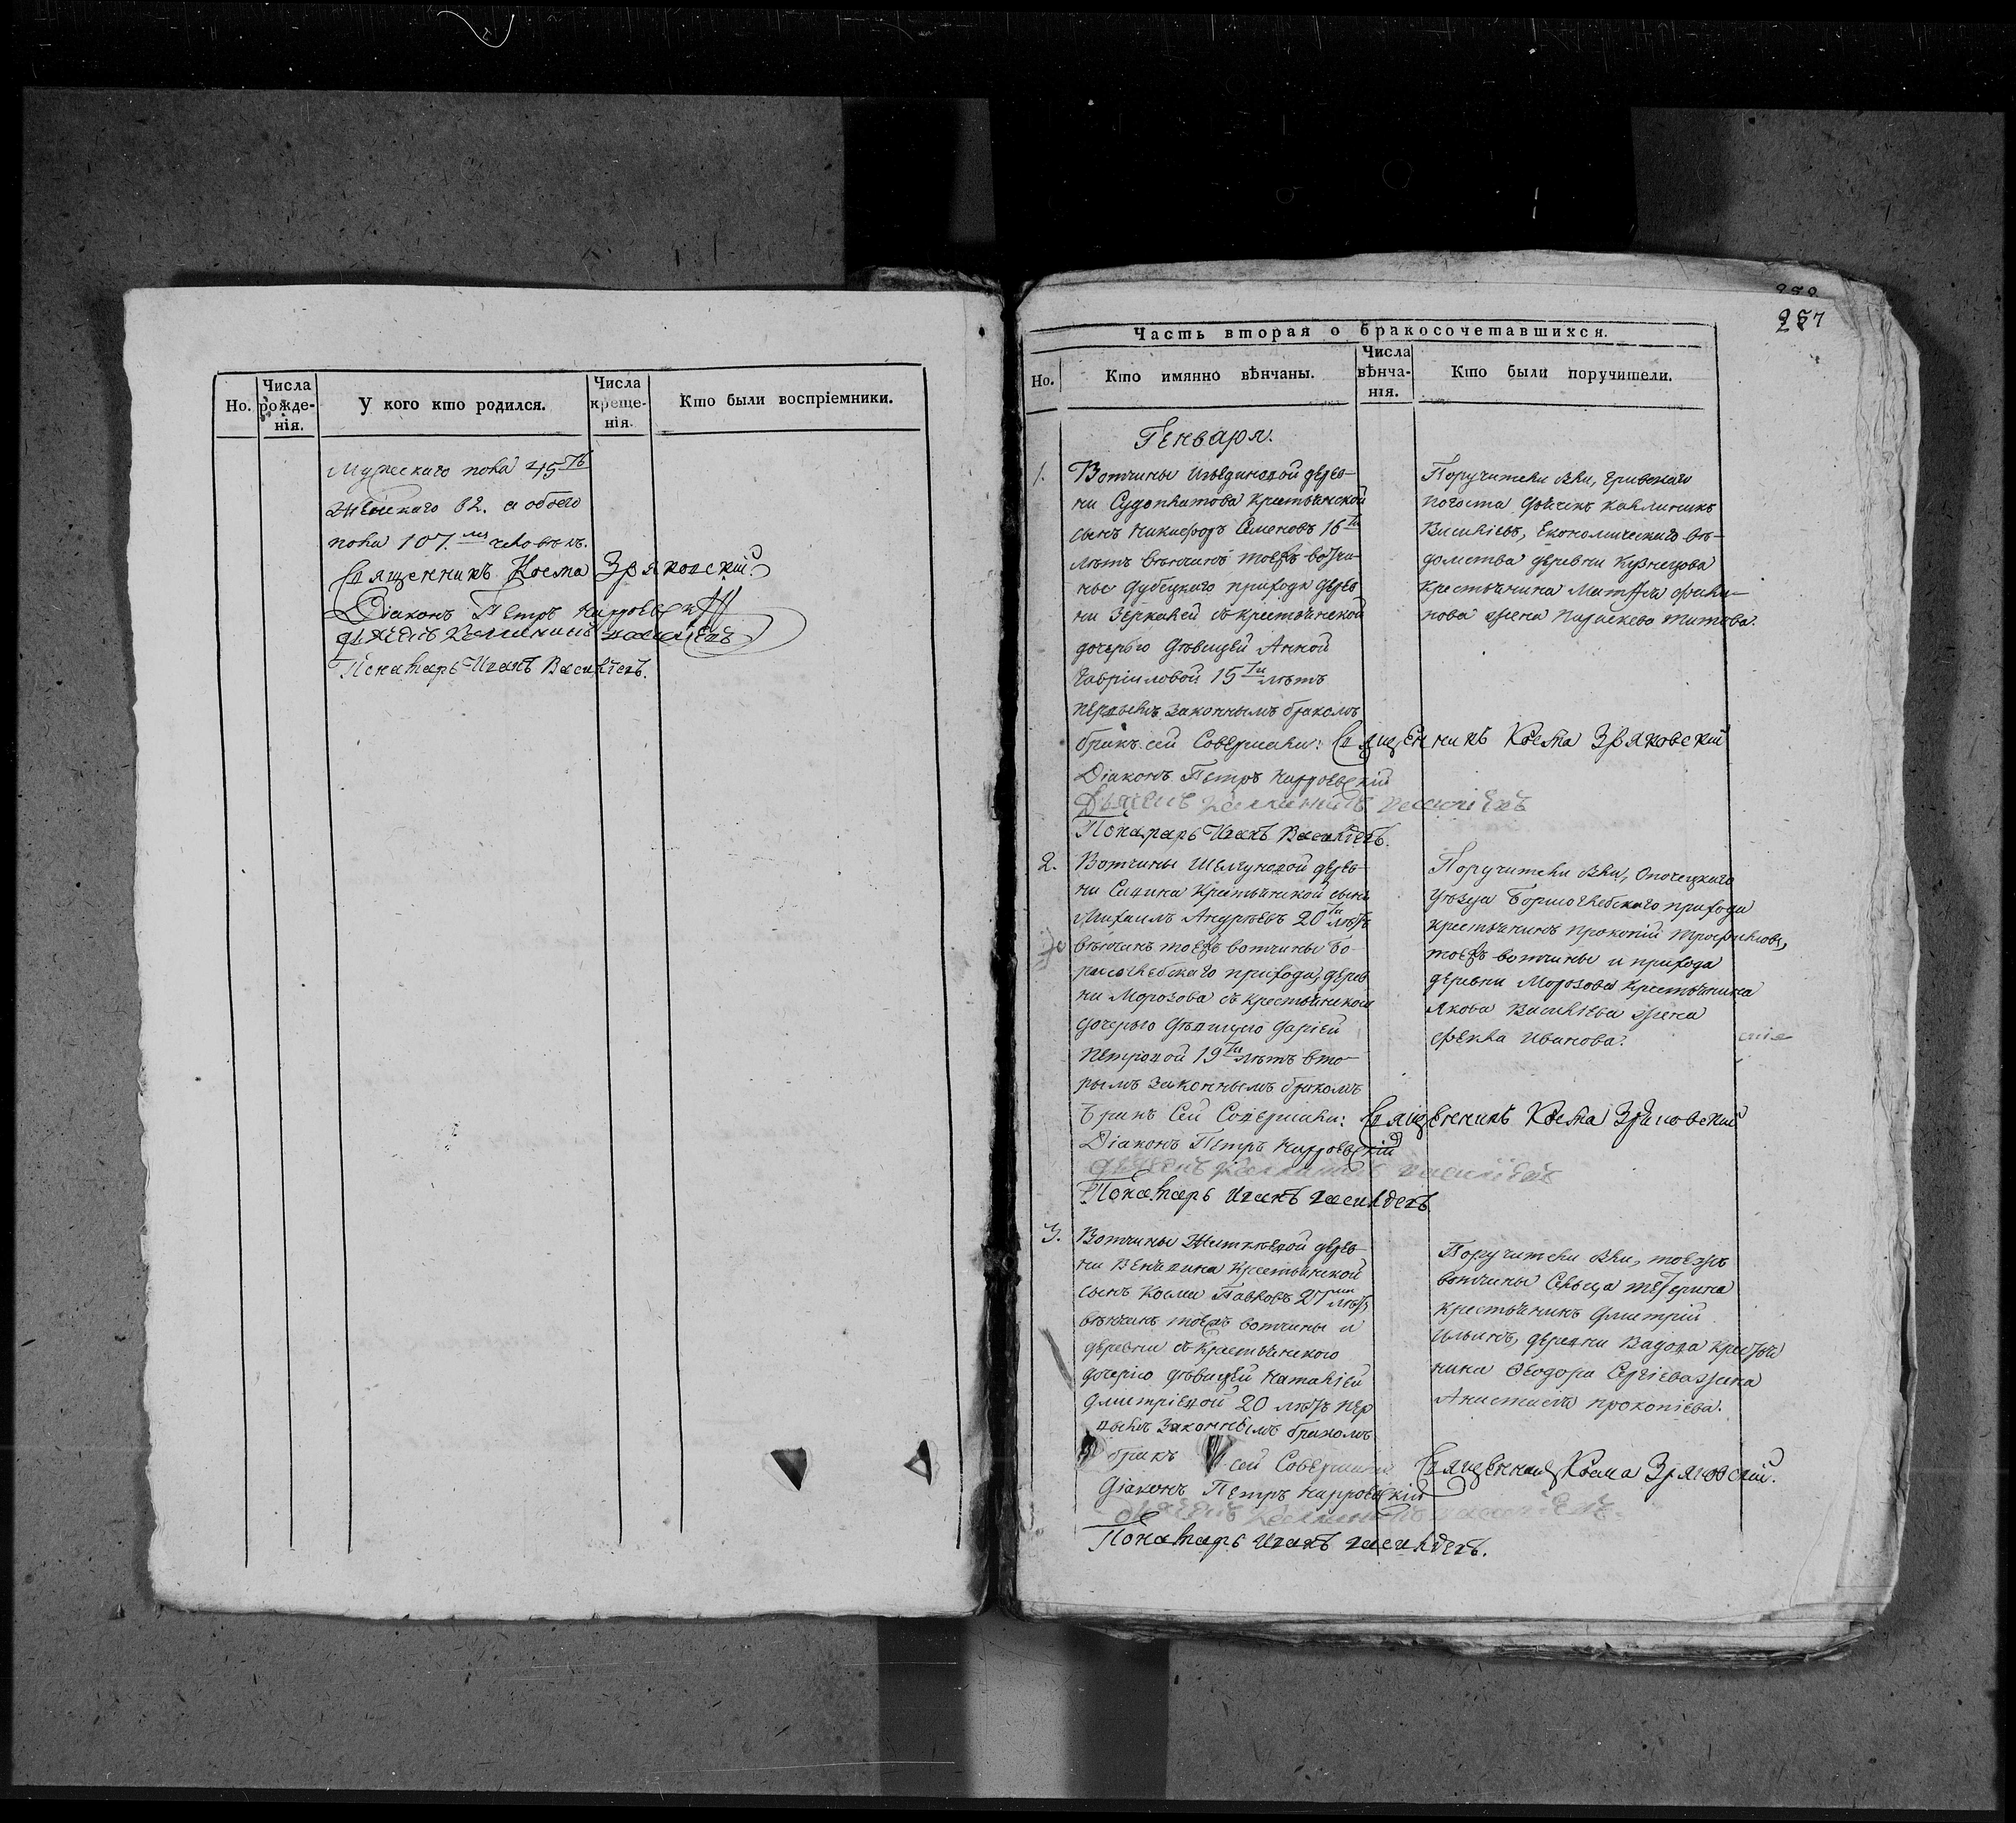 Но.
Числа рожде-нія.
У кого кто родился.
Числа креще-нія.
Кто были воспріемники.
Мужескаго пола 45ть
Женскаго 62. а обоего
пола 107. человѣкъ.
Священникъ Косма Зряковскій
Діаконъ Петръ
Дьячекъ Каллиникъ Василіевъ
Понамарь Иванъ Василіевъ.
257
Часть вторая о бракосочетавшихся.
Но.
Кто имянно вѣнчаны.
Числа вѣнча-нія.
Кто были поручители.
Генваря.
1. Вотчины деров-
ни крестьянской
сынъ Никифоръ Семеновъ 16ти
лѣтъ вѣнчанъ тоежъ вотчи-
ны Дубецкаго прихода дерев
ни съ крестьянской
дочерью дѣвицей Анной
Гавріиловой 15ти лѣтъ
первымъ законнымъ бракомъ
бракъ сей совершали: Священникъ Косма Зряковскій
Діаконъ Петръ
Дьячекъ Каллиникъ Василіевъ
Понамарь Иванъ Василіевъ.
Поручители были,
погоста дьячекъ Каллиникъ
Василіевъ, Економическаго вѣ-
домства деревни Кузнецова
крестьянина
жена Параскева Титова.
2. Вотчины дерев-
ни крестьянской сынъ
Михаилъ Андрѣевъ 20ти лѣтъ
вѣнчанъ тоежъ вотчины Бо-
рисоглебскаго прихода, дерев
ни Морозова съ крестьянской
дочерью дѣвицею Даріей
Петровой 19ти лѣтъ вто-
рымъ законнымъ бракомъ
Бракъ сей совершали: Священникъ Косма Зряковскій
Діаконъ Петръ
Дьячекъ Каллиникъ Василіевъ
Понамарь Иванъ Василіевъ
Поручители были, Опочецкаго
уѣзда Борисоглебскаго прихода
крестьянинъ Прокопій Трофимовъ,
тоежъ вотчины и прихода
деревни Морозова крестьянина
Якова Василіева жена
Фекла Иванова.
3. Вотчины дерев-
ни крестьянской
сынъ Косма Павловъ 27ми лѣтъ
вѣнчанъ тоежъ вотчины и
деревни съ крестьянского
дочерью дѣвицей Наталіей
Дмитріевой 20 лѣтъ пер
вымъ законнымъ бракомъ
бракъ сей совершали Священникъ Косма Зряковскій.
Діаконъ Петръ
Дьячекъ Каллиникъ Василіевъ.
Понамарь Иванъ Василіевъ.
Поручители были, тоежъ
вотчины сельца
крестьянинъ Дмитрій
Ильинъ, деревни крестья
нина Ѳеодора Сергіева жена
Анастасія Прокопіева.